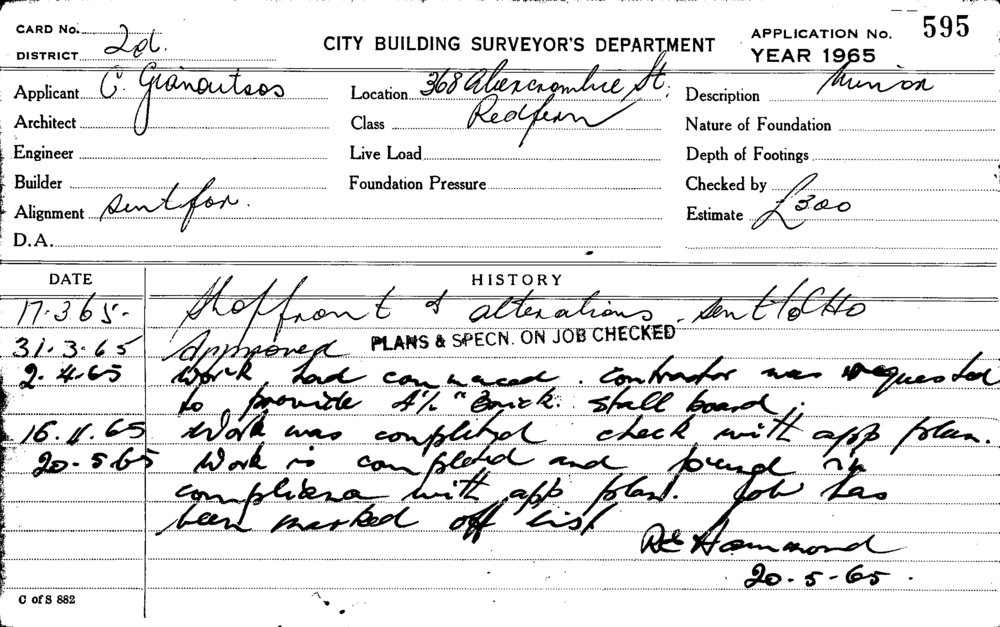 595
CARD No.
DISTRICT 2d.
CITY BUILDING SURVEYOR'S DEPARTMENT
APPLICATION No.
YEAR 1965
Applicant C. Gianoutsos
Location 368 Abercrombie St.
Redfern
Description Minor
Architect
Class
Nature of Foundation
Engineer
Live Load
Depth of Footings
Builder
Foundation Pressure
Checked by
Alignment sent for.
Estimate £300
D.A.
DATE HISTORY
17.3.65. Shopfront & alterations. sent to CHO
31.3.65 Approved PLANS & SPECN. ON JOB CHECKED
2.4.65 Work had commenced. contractor was requested
to provide 4½" Brick stall board.
16.4.65 Work was completed check with app plan.
20.5.65 Work is completed and found in
compliance with app plan. Job has
been marked off list
Hammond
20.5.65.
C of S 882